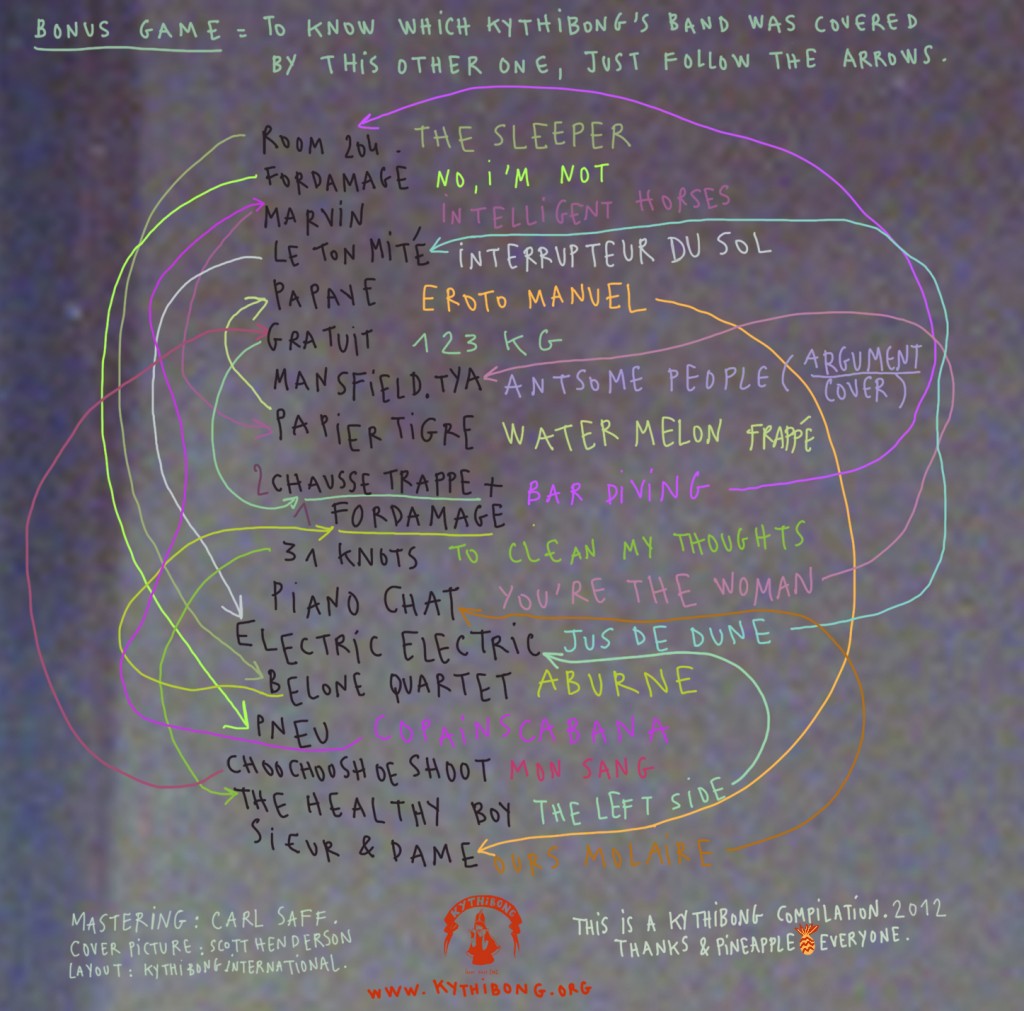 BONUS GAME = TO KNOW WHICH KYTHIBONG'S BAND WAS COVERED
BY THIS OTHER ONE, JUST FOLLOW THE ARROWS.
ROOM 204. THE SLEEPER
FORDAMAGE NO, I'M NOT
MARVIN INTELLIGENT HORSES
LE TON MITÉ INTERRUPTEUR DU SOL
PAPAYE EROTO MANUEL
GRATUIT 123 KG
MANSFIELD.TYA ANTSOME PEOPLE (ARGUMENT
COVER)
PAPIER TIGRE WATER MELON FRAPPÉ
2 CHAUSSE TRAPPE + BAR DIVING
1 FORDAMAGE
31 KNOTS TO CLEAN MY THOUGHTS
PIANO CHAT YOU'RE THE WOMAN
ELECTRIC ELECTRIC JUS DE DUNE
BELONE QUARTET ABURNE
PNEU COPAINSCABANA
CHOOCHOOSHOESHOOT MON SANG
THE HEALTHY BOY THE LEFT SIDE
SIEUR & DAME OURS MOLAIRE
MASTERING: CARL SAFF.
COVER PICTURE: SCOTT HENDERSON
LAYOUT: KYTHIBONG INTERNATIONAL.
KYTHIBONG
WWW.KYTHIBONG.ORG
THIS IS A KYTHIBONG COMPILATION. 2012
THANKS & PINEAPPLE EVERYONE.